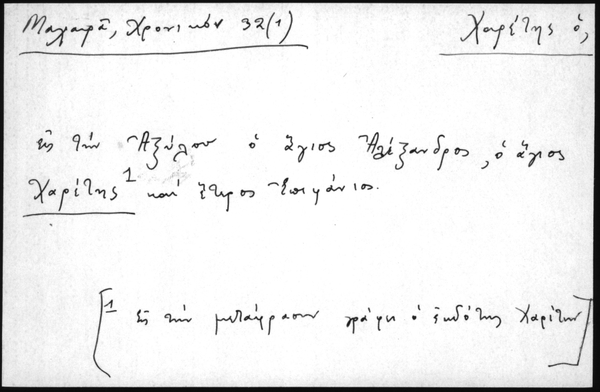 Μαχαιρᾶ, Χρονικόν 32(1)
Χαρέτης ὁ,
εἰς τὴν Ἀξύλου ὁ ἅγιος Ἀλέξανδρος, ὁ ἅγιος
Χαρέτης¹ καὶ ἕτερος Ἐπιφάνιος.
[1 Εἰς τὴν μετάφρασιν γράφει ὁ ἐκδότης Χαρίτων]